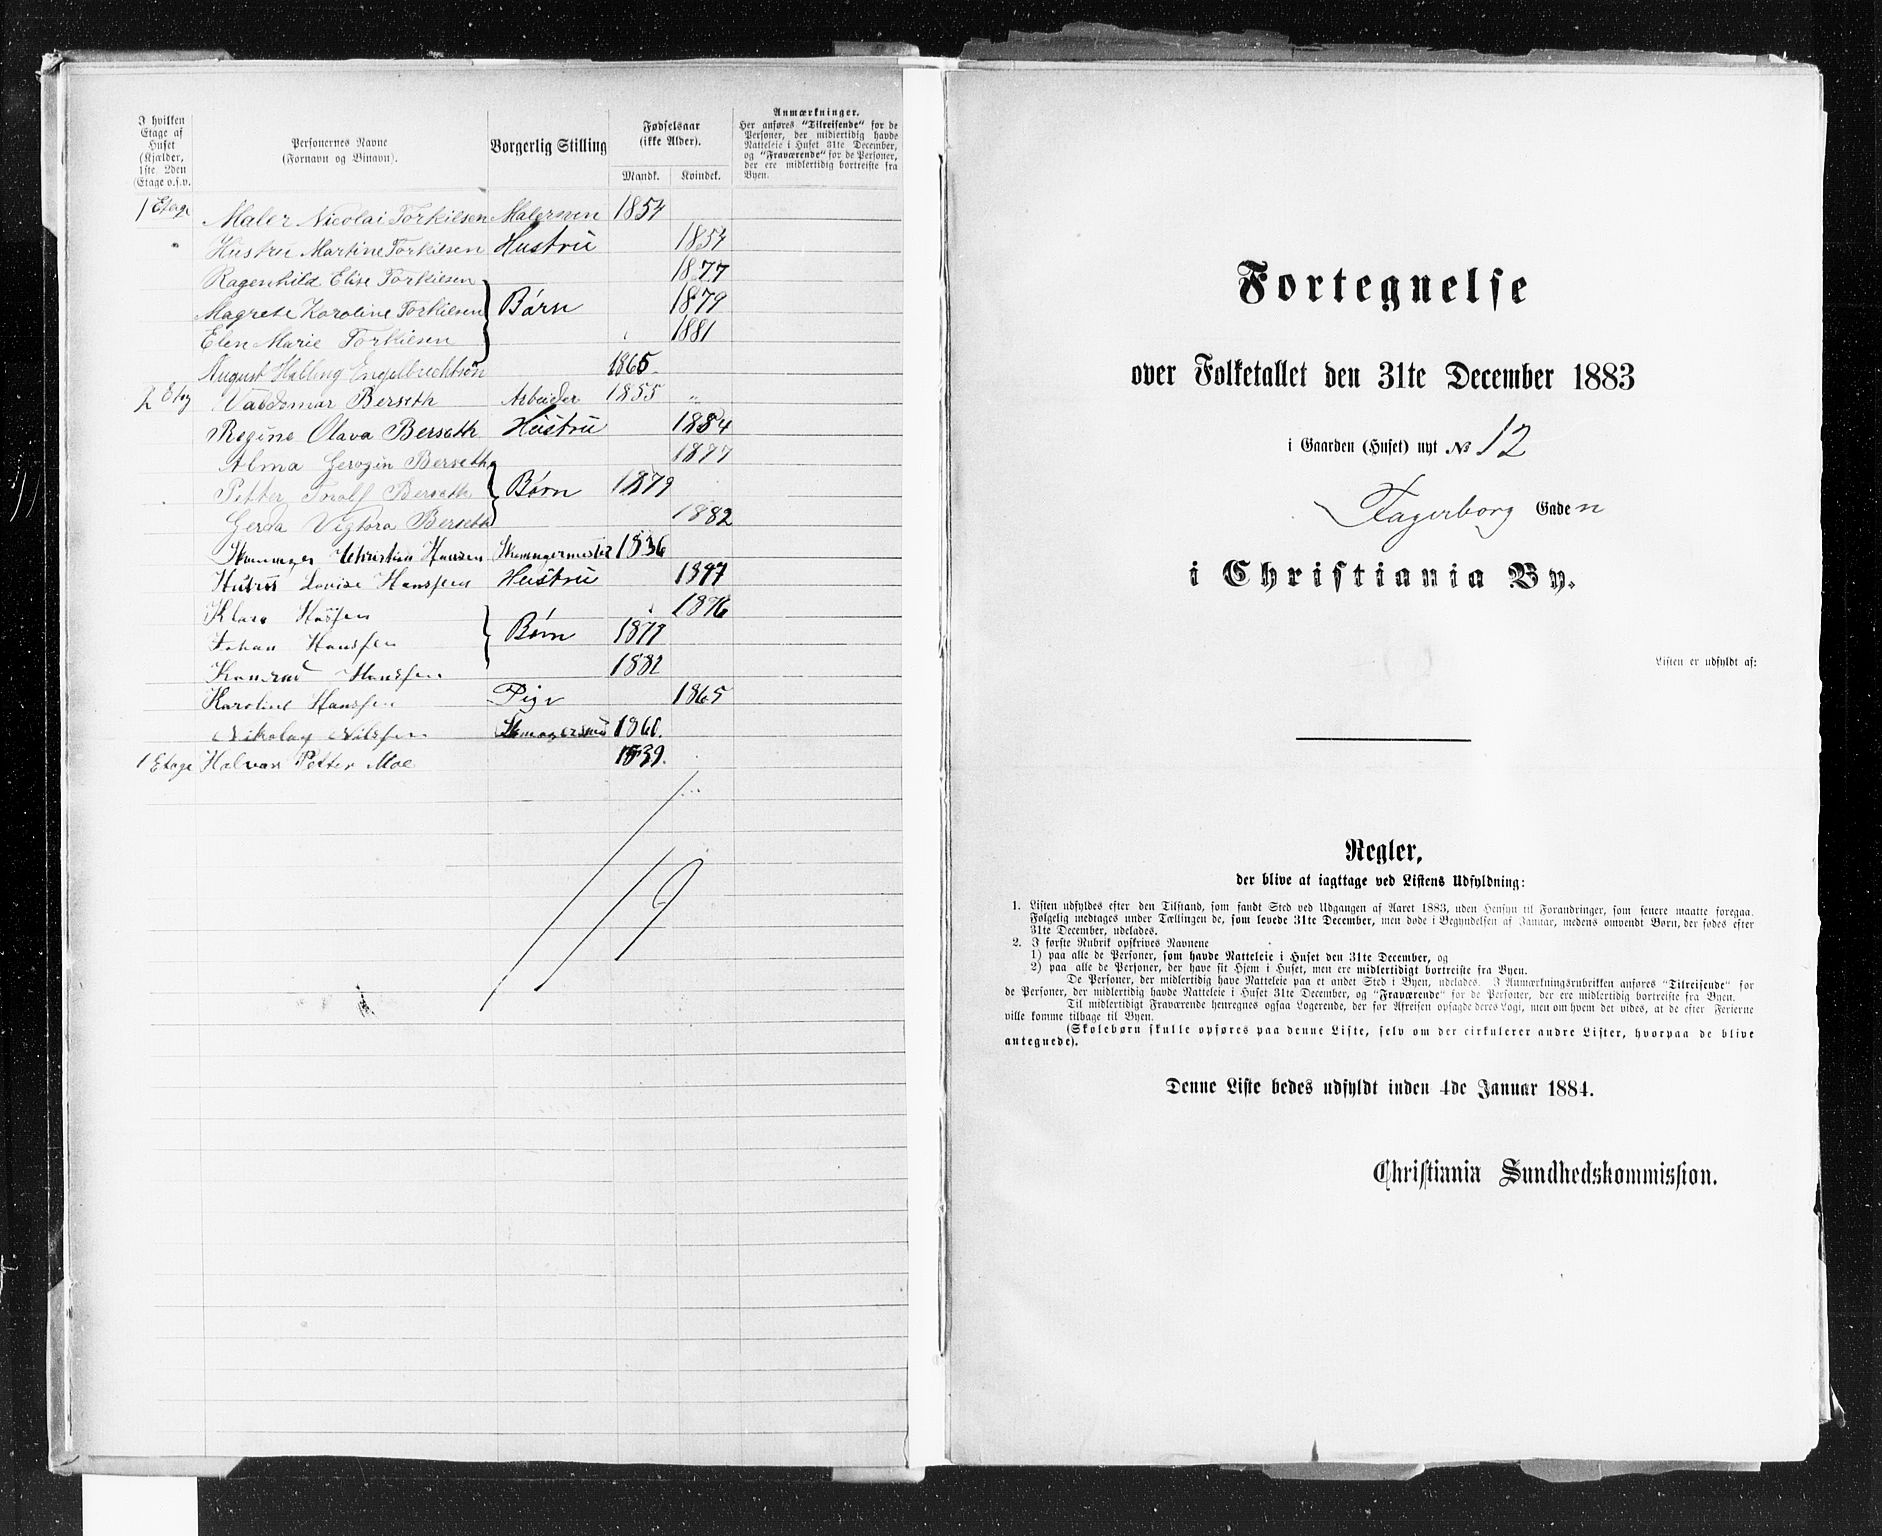 I hvilken Etage af Huset (Kjælder, 1ste 2den Etage o.s.v.
Personernes Navne (Fornavn og Binavn).
Borgerlig Stilling
Fødselsaar (ikke Alder).
Mandk. Kvindek.
Anmærkninger.
Her anføres "Tilreisende" for de Personer, der midlertidig havde Natteleie i Huset 31te December, og "Fraværende" for de Personer, der ere midlertidig bortreiste fra Byen.
1 Etage Maler Nicolai Torkilsen Malersven 1854
" Hustru Martine Torkilsen Hustru 1854
Ragenhild Elise Torkilsen 1877
Magrete Karoline Torkilsen Børn 1879
Elen Marie Torkilsen 1881
August Halling Engelbrechtson 1865.
2 Etag Valdemar Berseth Arbeider 1855 "
Regine Olava Berseth Hustru 1854
Alma Gerogin Berseth 1877
Petter Torolf Berseth Børn 1879
Gerda Vigtora Berseth 1882
Christian Hansen 1836
Lovise Hanssen Hustru
1876
Johan Hanssen Børn 1877
Hanssen 1882
Karoline Hanssen Pige 1865
Nikolay Nilssen
1 Etage Halvar Petter Moe 1839.
19
Fortegnelse
over Folketallet den 31te December 1883
i Gaarden (Huset) nyt No 12
Fagerborg Gaden
i Christiania By.
Listen er udfyldt af:
Regler,
der blive at iagttage ved Listens Udfyldning:
1. Listen udfyldes efter den Tilstand, som fandt Sted ved Udgangen af Aaret 1883, uden Hensyn til Forandringer, som senere maatte foregaa.
Følgelig medtages under Tællingen de, som levede 31te December, men døde i Begyndelsen af Januar, medens omvendt Børn, der fødes efter
31te December, udelades.
2. I første Rubrik opskrives Navnene
1) paa alle de Personer, som havde Natteleie i Huset den 31te December, og
2) paa alle de Personer, der have sit Hjem i Huset, men ere midlertidigt bortreiste fra Byen.
De Personer, der midlertidig have Natteleie paa et andet Sted i Byen, udelades. I Anmærkningsrubrikken anføres "Tilreisende" for
de Personer, der midlertidig havde Natteleie i Huset 31te December, og "Fraværende" for de Personer, der ere midlertidig bortreiste fra Byen.
Til midlertidigt Fraværende henregnes ogsaa Logerende, der før Afreisen opsagde deres Logi, men om hvem det vides, at de efter Ferierne
ville komme tilbage til Byen.
(Skolebørn skulle opføres paa denne Liste, selv om der cirkulerer andre Lister, hvorpaa de blive
antegnede).
Denne Liste bedes udfyldt inden 4de Januar 1884.
Christiania Sundhedskommission.